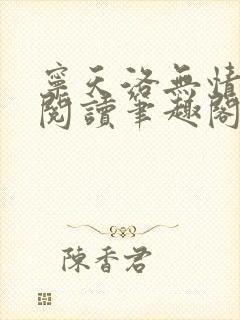 寧天洛無情
閱讀筆趣閣
陳香君